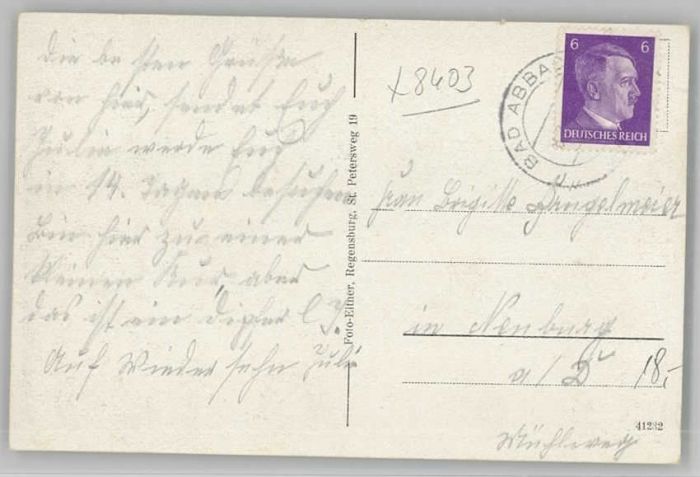 die besten Grüße
von hier, sendet Euch
Julie werde Euch
in 14. Tagen besuchen
bin hier zu einer
kleinen Kur, aber
das ist ein
Auf Wiedersehn Juli
Foto-Either, Regensburg, St. Petersweg 19
x8403
BAD ABBA
6 6
DEUTSCHES REICH
Frau Brigitte
in Neuburg
a/D
18,-
Mühlweg
41282